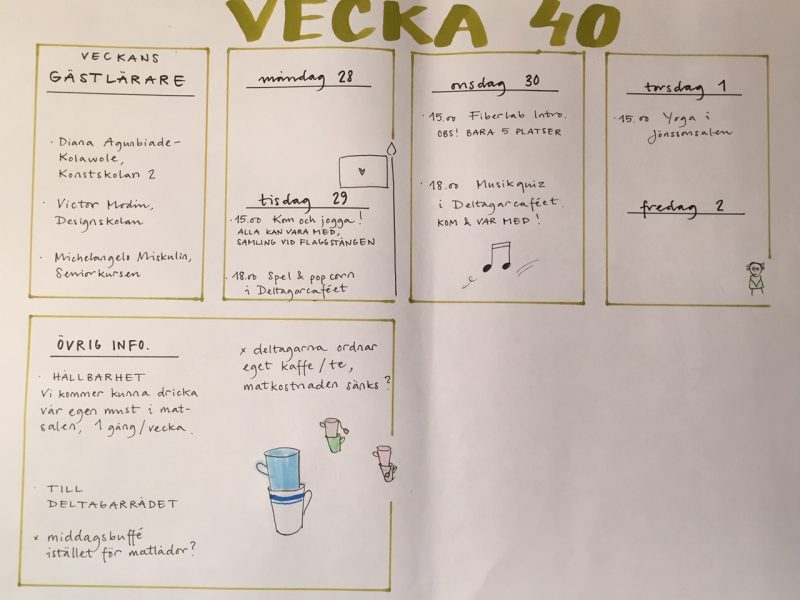 VECKA 40
VECKANS
GÄSTLÄRARE
· Diana Agunbiade-
Kolawole,
Konstskolan 2
· Victor Modin,
Designskolan
· Michelangelo Miskulin,
Seniorkursen
måndag 28
tisdag 29
· 15.00 Kom och jogga!
ALLA KAN VARA MED,
SAMLING VID FLAGGSTÅNGEN
· 18.00 Spel & popcorn
i Deltagarcaféet
onsdag 30
· 15.00 Fiberlab Intro.
OBS! BARA 5 PLATSER
· 18.00 Musikquiz
i Deltagarcaféet.
KOM & VAR MED!
torsdag 1
· 15.00 Yoga i
Jönssonsalen
fredag 2
ÖVRIG INFO.
· HÅLLBARHET
Vi kommer kunna dricka
vår egen must i mat-
salen, 1 gång/vecka.
· TILL
DELTAGARRÅDET
x middagsbuffé
istället för matlådor?
x deltagarna ordnar
eget kaffe/te,
matkostnaden sänks?